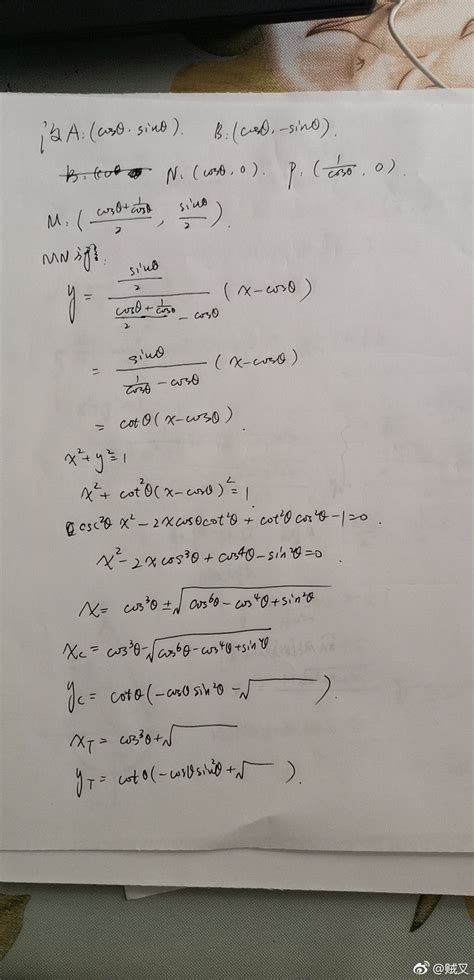 设A:(cosθ, sinθ). B:(cosθ, -sinθ).
N:(cosθ, 0). P:(1/cosθ, 0).
M:((cosθ+1/cosθ)/2, sinθ/2).
MN过程:
y = (sinθ/2)/((cosθ+1/cosθ)/2 - cosθ) (x-cosθ)
= sinθ/(1/cosθ - cosθ) (x-cosθ)
= cotθ(x-cosθ).
x²+y²=1
x²+cot²θ(x-cosθ)²=1.
csc²θ x²-2xcosθcot²θ+cot²θcos²θ-1=0.
x²-2xcos³θ+cos⁴θ-sin²θ=0.
x= cos³θ±√(cos⁶θ-cos⁴θ+sin²θ)
x_C=cos³θ-√(cos⁶θ-cos⁴θ+sin²θ)
y_C= cotθ(-cosθsin²θ-√ ).
x_T= cos³θ+√
y_T= cotθ(-cosθsin²θ+√ ).
@贼叉